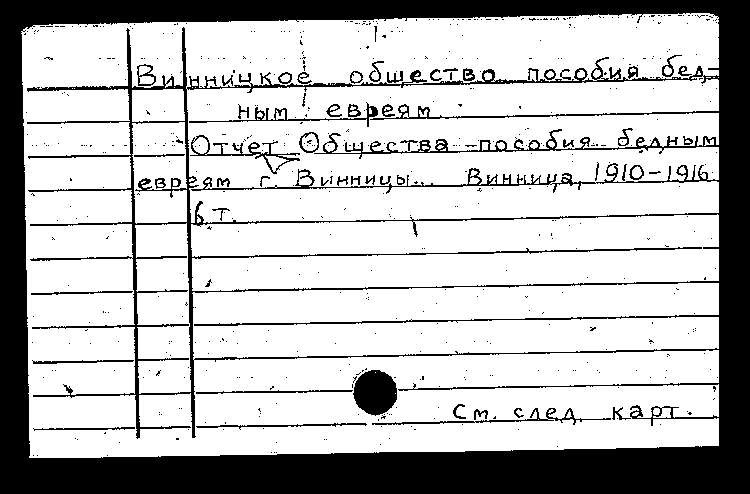 1.
Винницкое общество пособия бед-
ным евреям
Отчет Общества пособия бедным
евреям г. Винницы... Винница, 1910-1916
6 т.
См. след. карт.